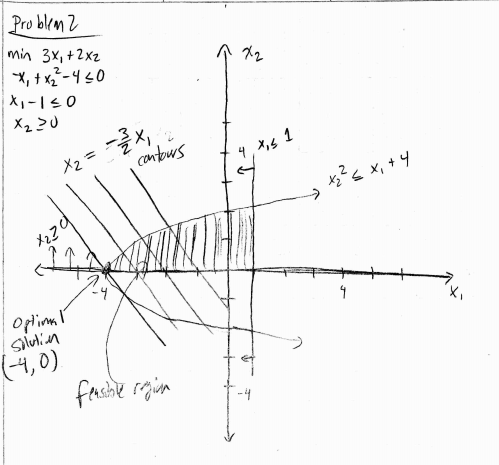 Problem 2
min 3x₁+2x₂
-x₁+x₂²-4≤0
x₁-1≤0
x₂≥0
x₂
x₂ = -3/2 x₁
contours
4
x₁≤1
x₂² ≤ x₁+4
x₂≥0
-4
4
x₁
Optimal
solution
(-4,0)
feasible region
-4